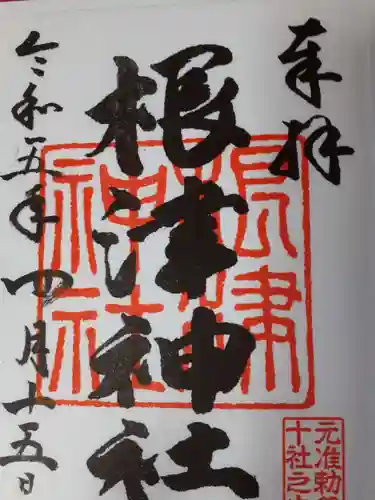 奉拝
根津神社
根津神社
令和五年四月十五日
元准勅
十社之